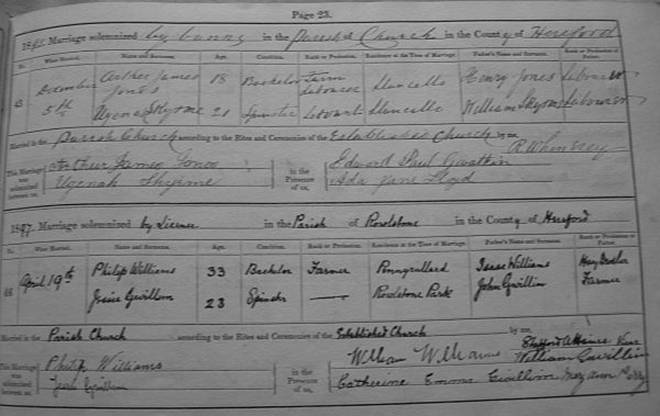 Page 23.
Marriage solemnized by banns in the Parish of Church in the County of Hereford
No. When Married. Name and Surname. Age. Condition. Rank or Profession. Residence at the Time of Marriage. Father's Name and Surname. Rank or Profession of Father.
45 December 5th Arthur James Jones 18 Bachelor Farm labourer Llancillo Henry Jones Labourer
Skyrme 21 Spinster Servant Llancillo William Skyrme Labourer
Married in the Parish Church according to the Rites and Ceremonies of the Established Church by me,
This Marriage was solemnized between us, Arthur James Jones in the Presence of us, Edward Paul Gwatkin
Skyrme Ada Jane Lloyd
1897. Marriage solemnized by License in the Parish of Rowlstone in the County of Hereford
No. When Married. Name and Surname. Age. Condition. Rank or Profession. Residence at the Time of Marriage. Father's Name and Surname. Rank or Profession of Father.
46 April 19th Philip Williams 33 Bachelor Farmer Isaac Williams Hay Dealer
Jessie Gwillim 23 Spinster — Rowlstone Park John Gwillim Farmer
Married in the Parish Church according to the Rites and Ceremonies of the Established Church by me, Vicar
This Marriage was solemnized between us, Philip Williams in the Presence of us, William Williams William Gwillim
Gwillim Catherine Emma Gwillim Mary Ann